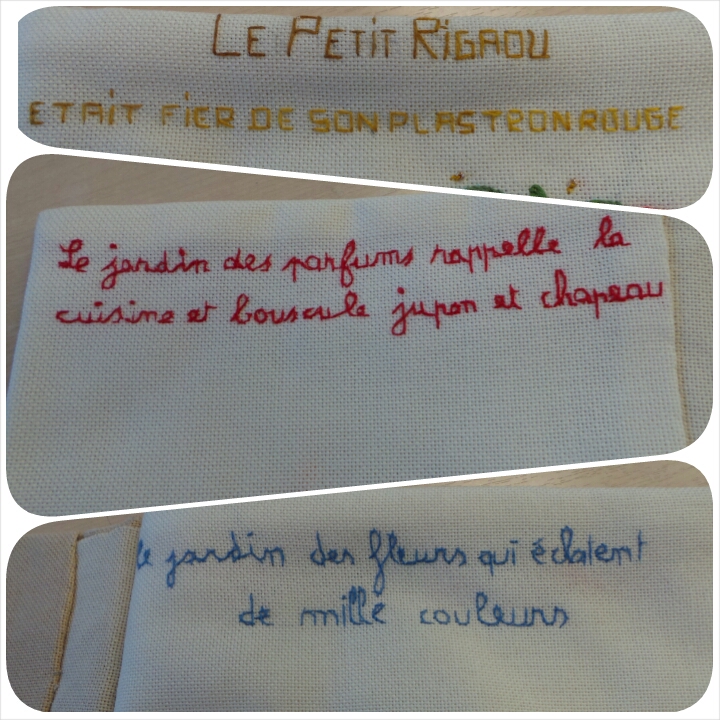 LE PETIT RIGAOU
ETAIT FIER DE SON PLASTRON ROUGE
Le jardin des parfums rappelle la
cuisine et bouscule jupon et chapeau
le jardin des fleurs qui éclatent
de mille couleurs